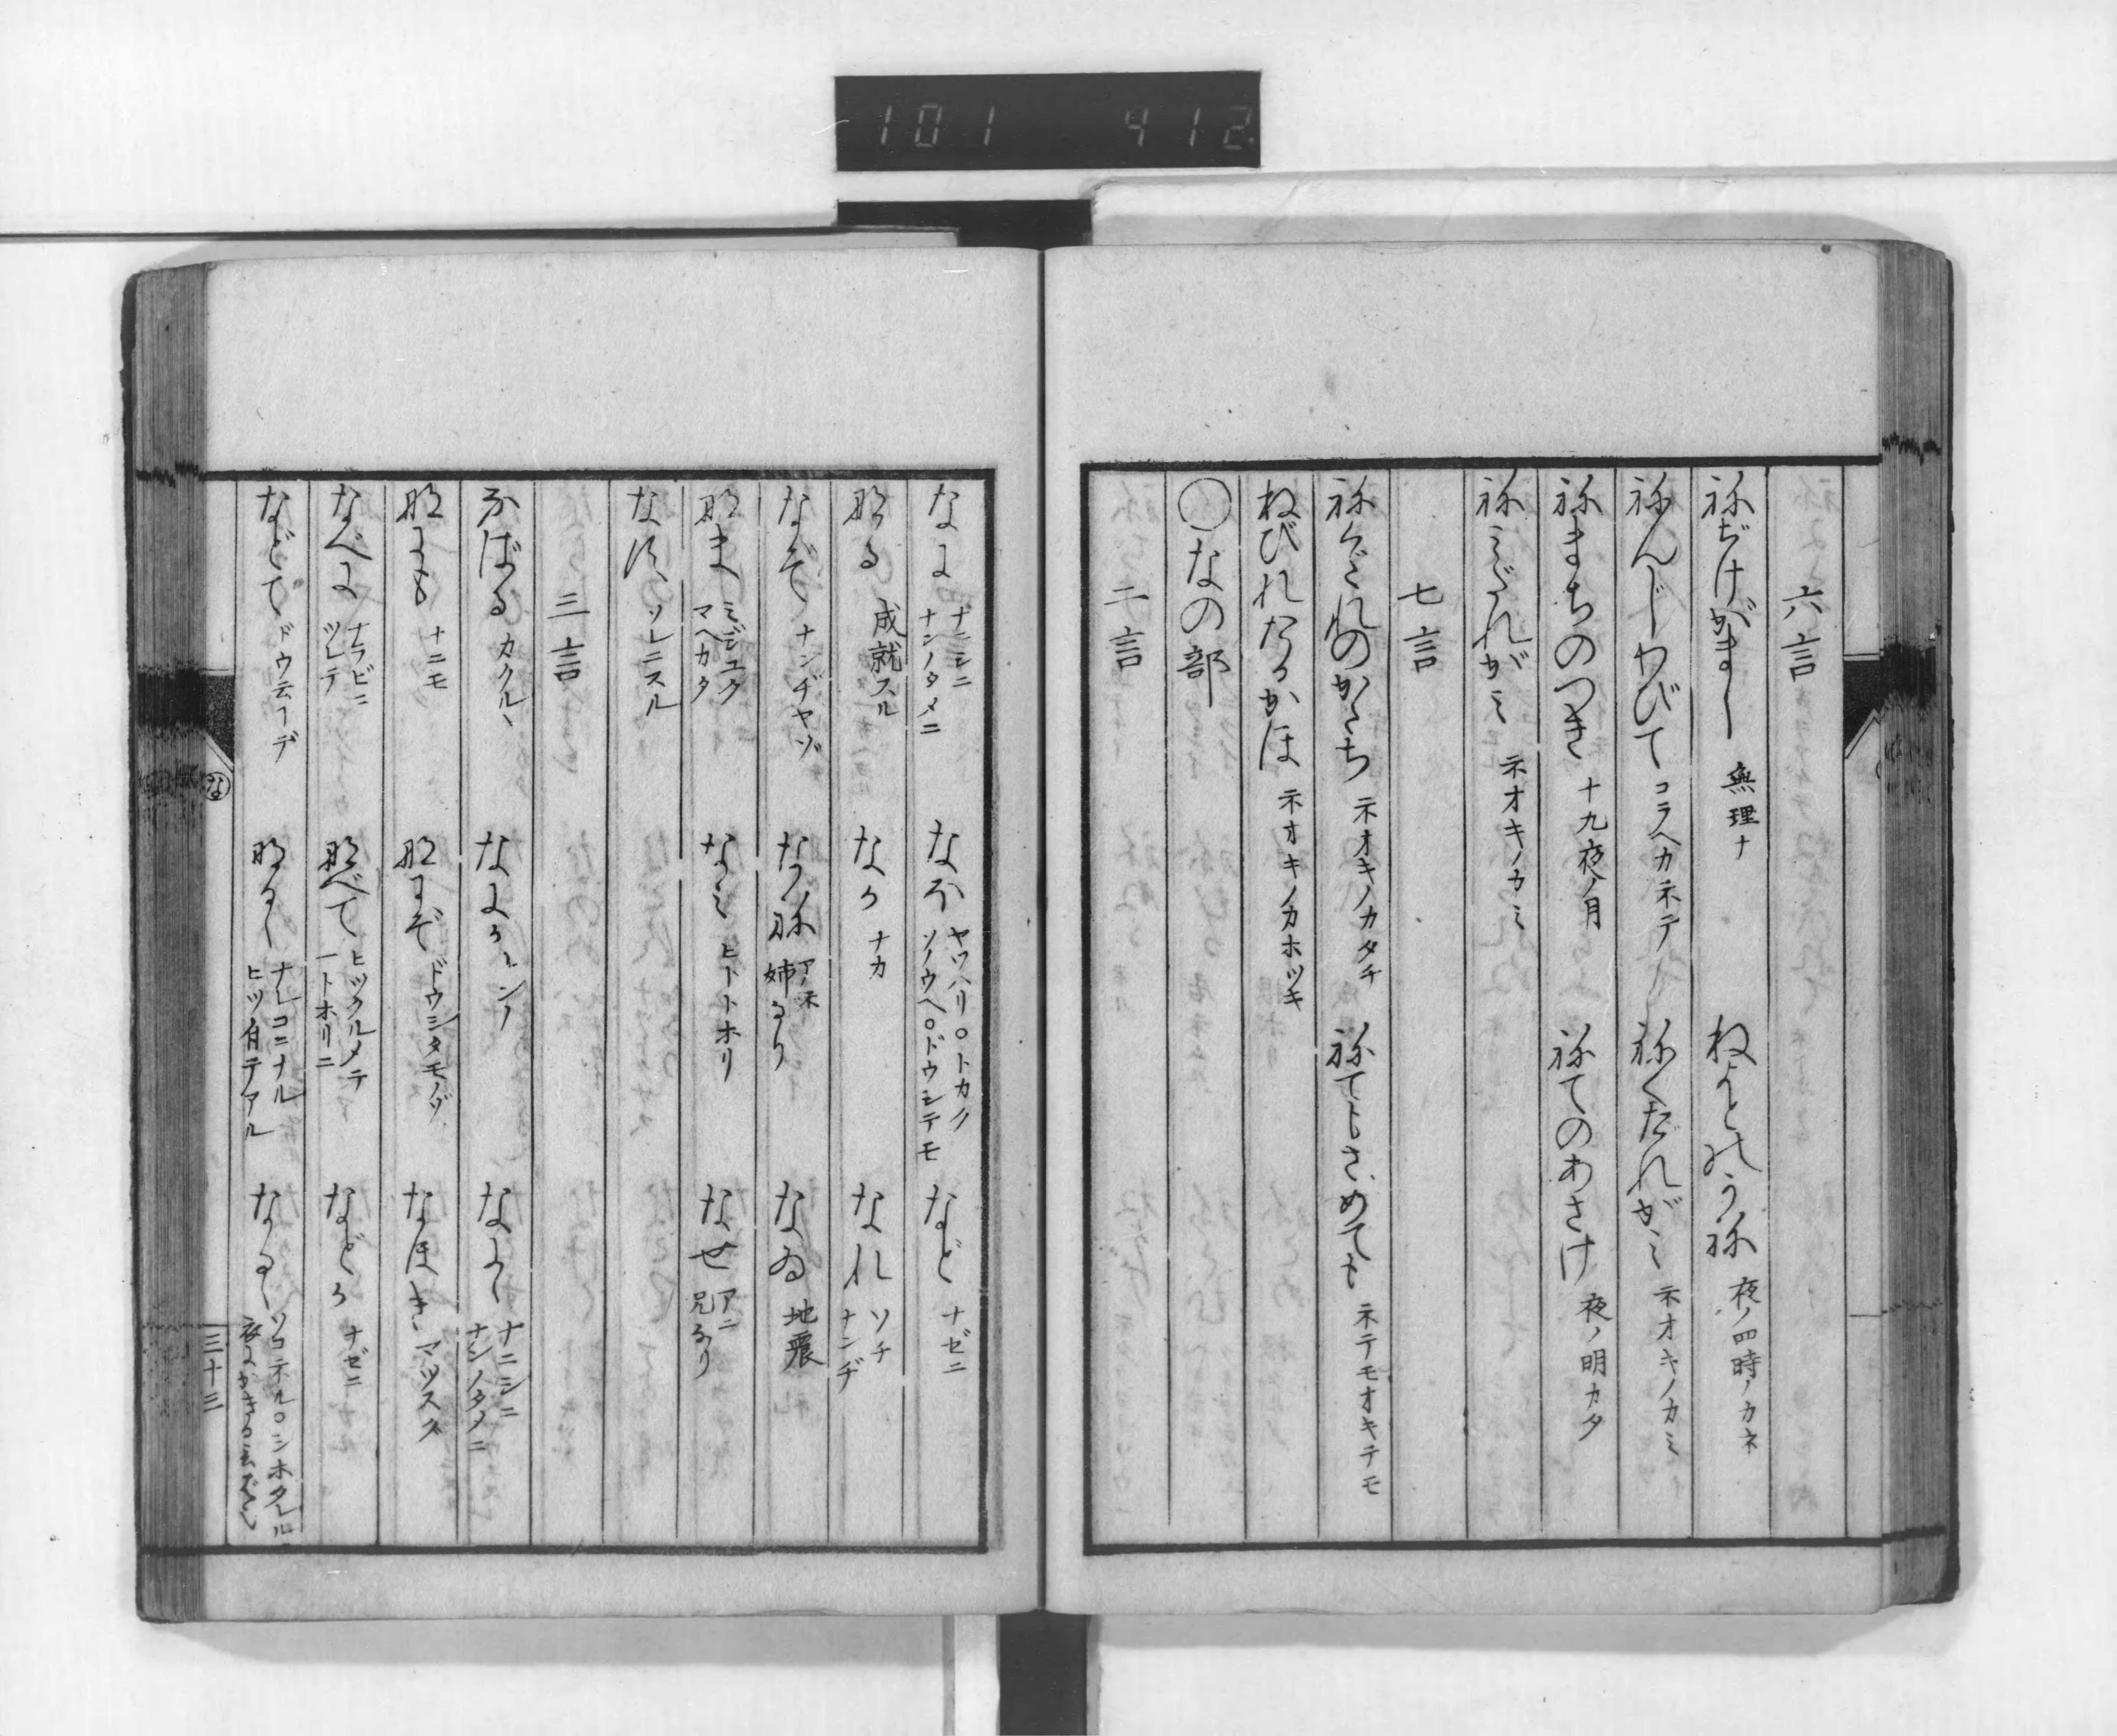 101 412
六言
ねぢけがまし 無理ナ
ねよとのかね 夜ノ四時ノカネ
ねんじわびて コラヘカネテ
ねくたれがミ ネオキノカミ
ねまちのつき 十九夜ノ月
ねてのあさけ 夜ノ明カタ
ねミだれがミ ネオキノカミ
七言
ねくたれのかたち ネオキノカタチ
ねてもさめても ネテモオキテモ
ねびれたるかほ ネオキノカホツキ
○なの部
二言
なに ナニシニ ナンノタメニ
なほ ヤツハリ○トカク ソノウヘ○ドウシテモ
など ナゼニ
なる 成就スル
なか ナカ
なれ ソチ ナンヂ
なぞ ナンヂヤゾ
なね アネ 姉なり
なゐ 地震
なま ミジユク マヘカタ
なミ ヒトトホリ
なせ アニ 兄なり
なす ソレニスル
三言
なばる カクルヽ
なにか
なによ ナニシニ ナンノタメニ
なにも ナニモ
なにぞ ドウシタモノゾ
なほき マツスク
なべに ナラビニ ツレテ
なべて ヒツクルメテ 一トホリニ
などか ナゼニ
などて ドウ云ーデ
なるし
なるし
な
三十三